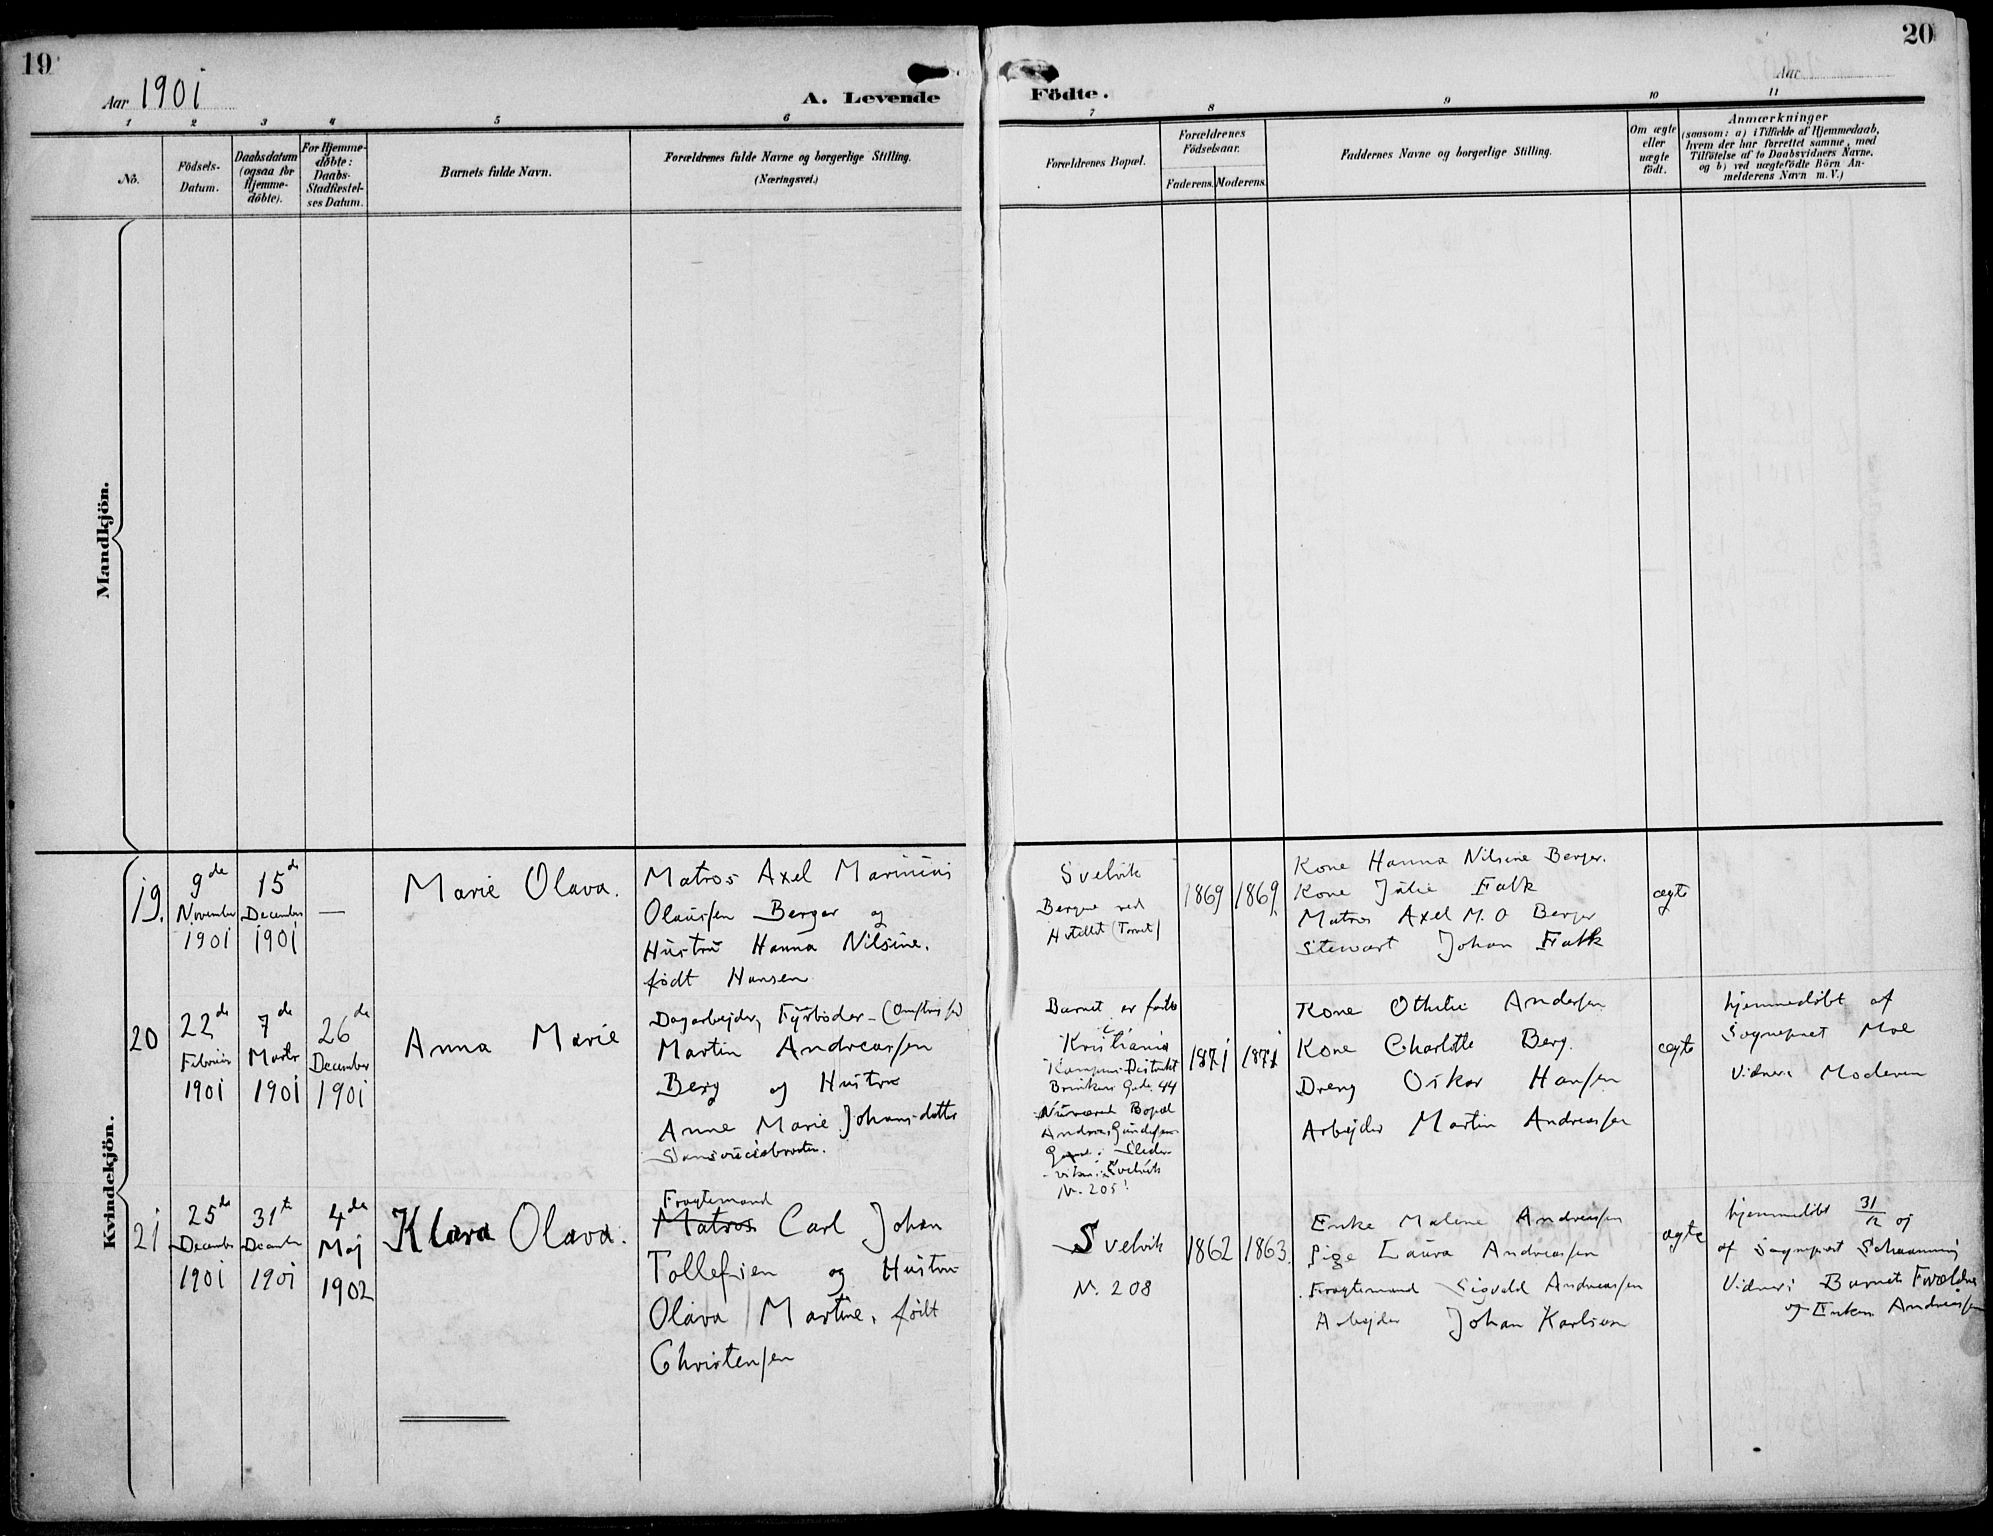 19
20
Aar 1901
A. Levende Födte.
Aar
1 2 3 4 5 6 7 8 9 10 11
No.
Födsels-
Datum.
Daabsdatum
(ogsaa for
Hjemme-
döbte).
For Hjemme-
döbte:
Daabs-
Stadfæstel-
ses Datum.
Barnets fulde Navn.
Forældrenes fulde Navne og borgerlige Stilling.
(Næringsvei.)
Forældrenes Bopæl.
Forældrenes
Födselsaar.
Faderens. Moderens.
Faddernes Navne og borgerlige Stilling.
Om ægte
eller
uægte
födt.
Anmærkninger
(saasom: a) i Tilfælde af Hjemmedaab,
hvem der har forrettet samme, med
Tilföielse af to Daabsvidners Navne.
og b) ved uægtefödte Börn An-
melderens Navn m. V.)
Mandkjön.
Kvindekjön.
19.
9de
November
1901
15de
December
1901
—
Marie Olava.
Matros Axel Marinius
Olaussen Berger og
Hustru Hanna Nilsine.
født Hansen
Svelvik
Bergne ved
Hotellet (Torvet)
1869
1869
Kone Hanna Nilsine Berger.
Kone Julie Falk
Matros Axel M. O Berger
Stewart Johan Falk
ægte
20
22de
Februar
1901
7de
Marts
1901
26de
December
1901
Anna Marie
Dagarbejder, Fyrbøder
Martin Andreassen
Berg og Hustru
Anne Marie Johansdatter
Barnet er født
i
Kristiania
Kampens Distrikt
Brinkens Gade 44
Nuværende Bopæl
Andreas Gundersens
Gaard i
Svelvik
N. 205!
1871
1871
Kone Othilie Andersen
Kone Charlotte Berg.
Dreng Oskar Hansen
Arbejder Martin Andreassen
ægte
hjemmedøbt af
Sognepræst Moe
Vidner: Moderen
21
25de
December
1901
31te
December
1901
4de
Maj
1902
Klara Olava.
Fragtemand
Matros Carl Johan
Tollefsen og Hustru
Olava Martine, født
Christensen
Svelvik
N. 208
1862
1863.
Enke Malene Andreassen
Pige Laura Andreassen
Fragtemand Sigvald Andreassen
Arbejder Johan Karlsen
ægte
hjemmedøbt 31/12 01
af Sognepræst Schaanning
Vidner: Barnets Forældre
og Enken Andreassen